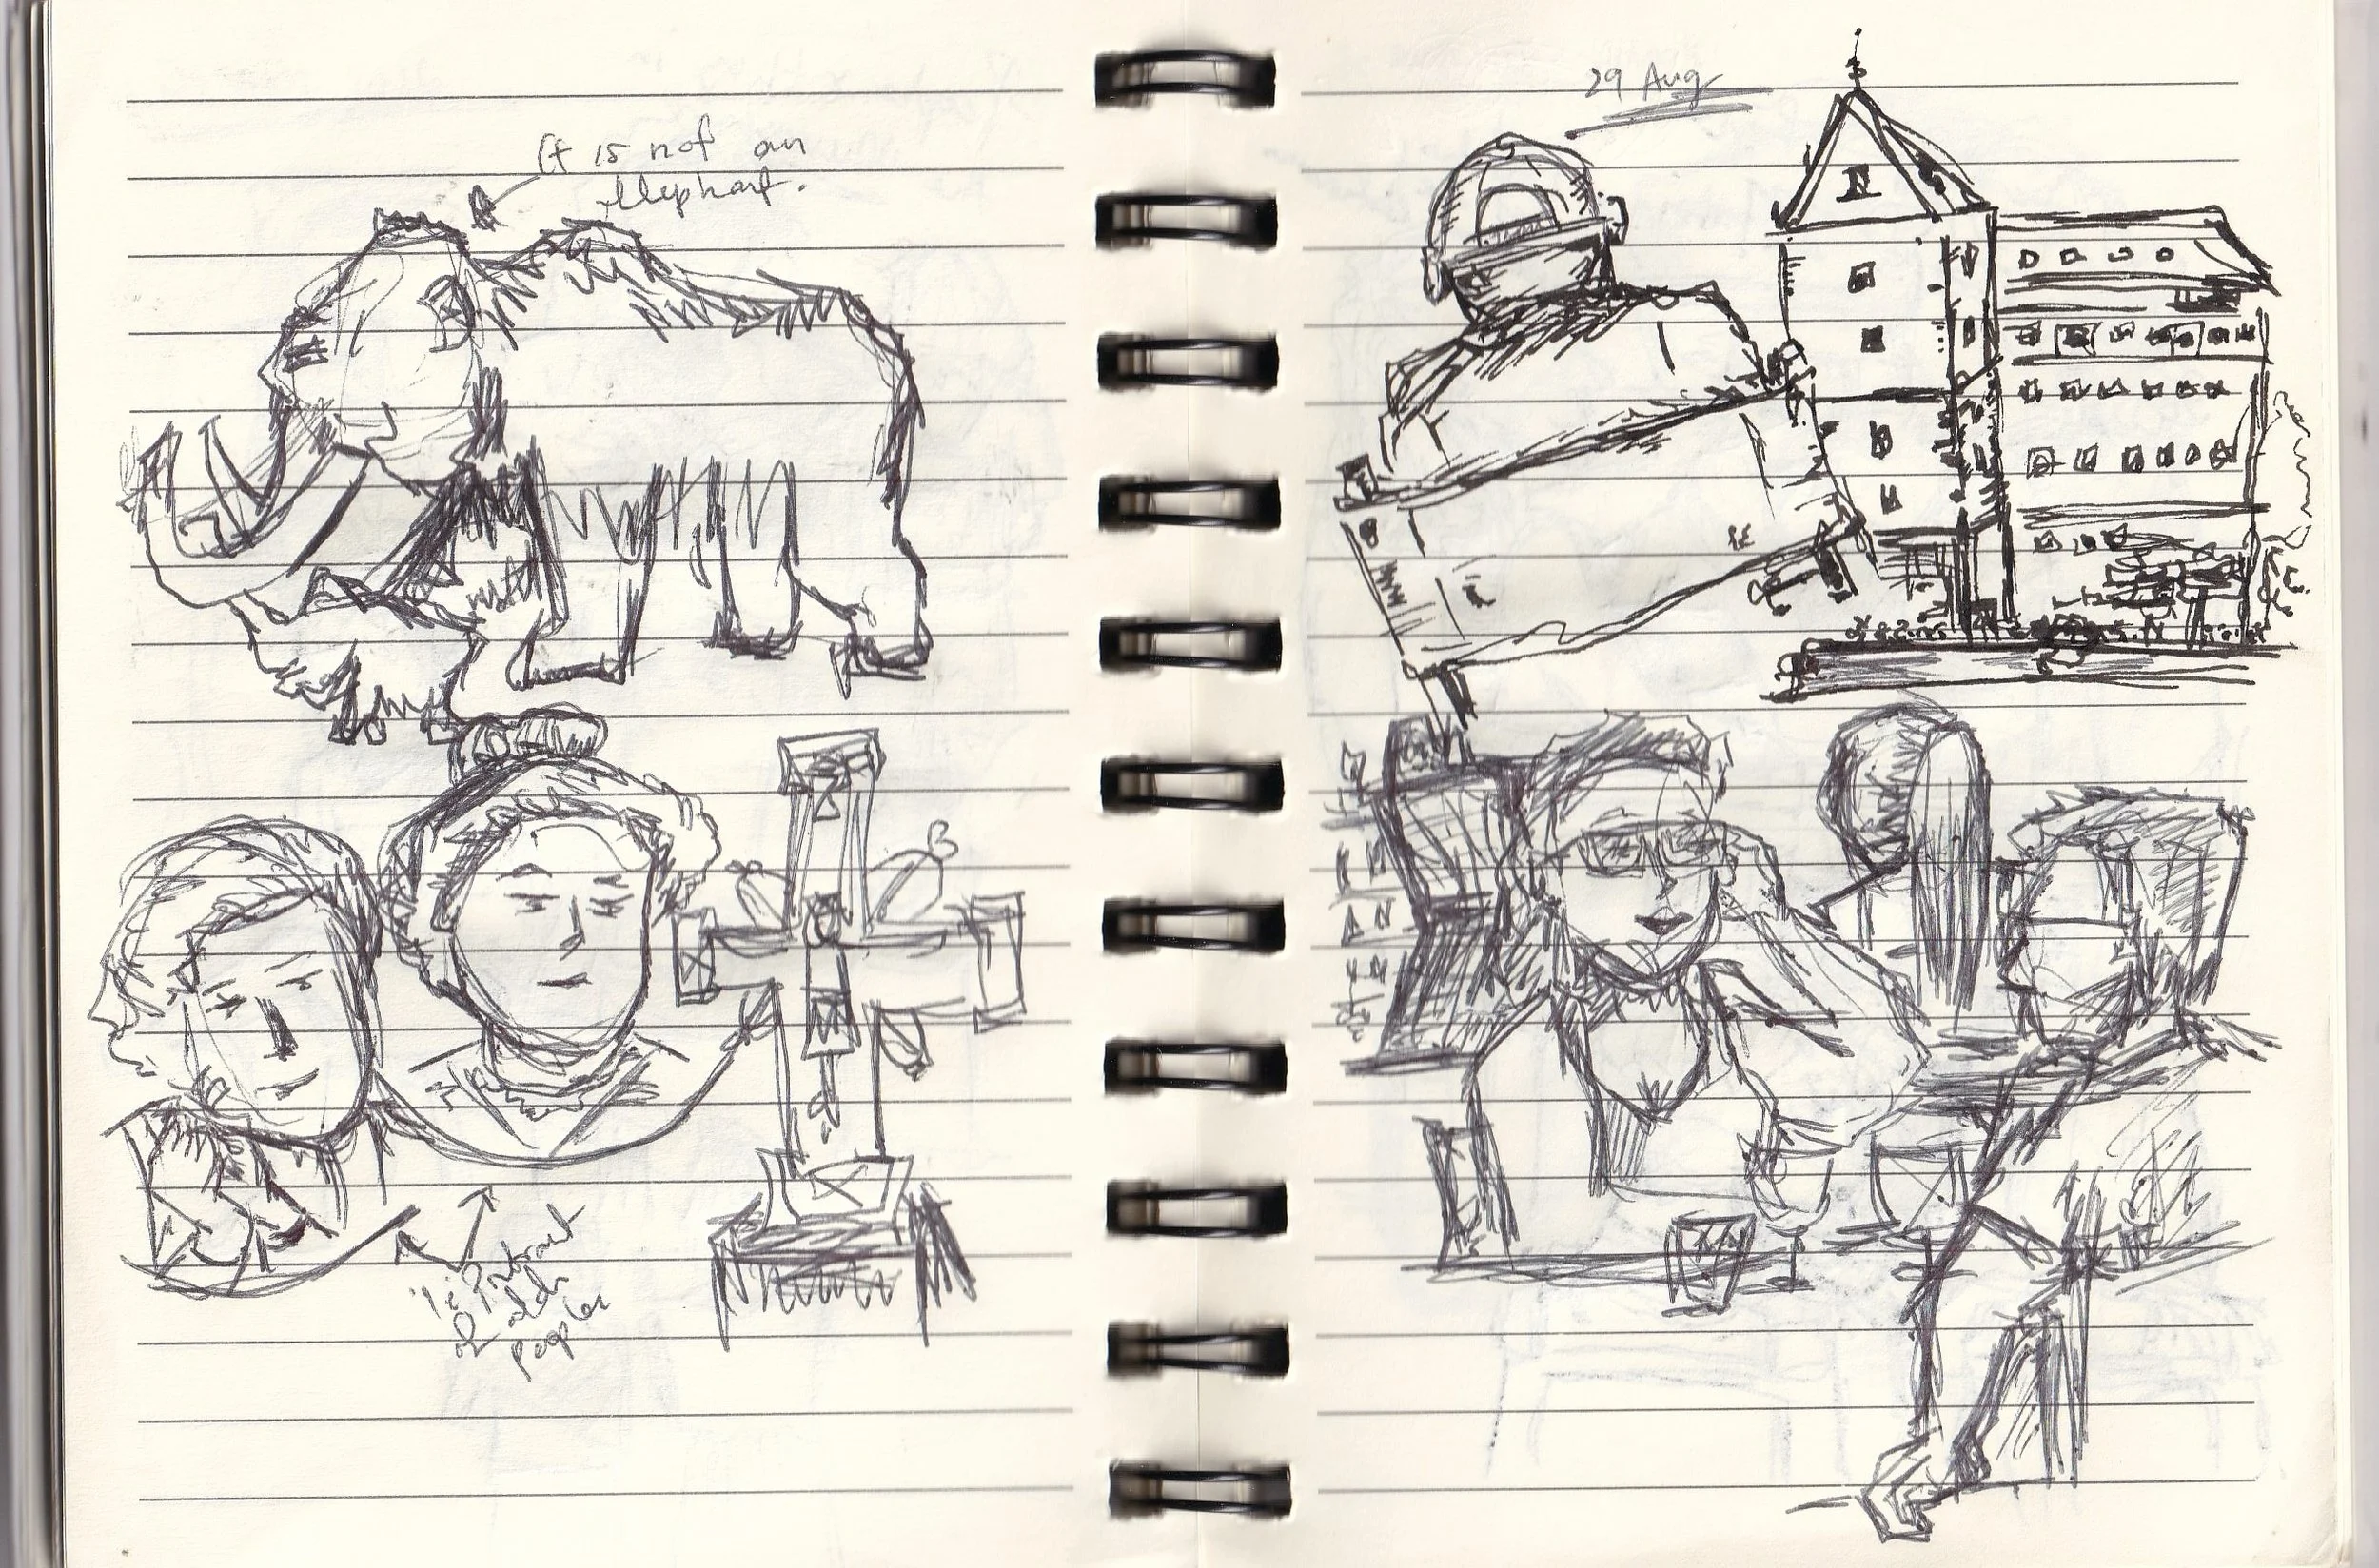 It is not an
Elephant.
29 Aug
Portrait
of old
people